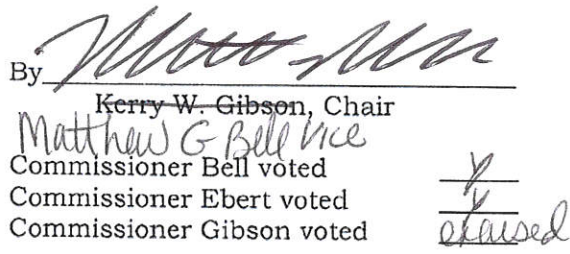 By
Kerry W. Gibson, Chair
Matthew G Bell Vice
Commissioner Bell voted y
Commissioner Ebert voted y
Commissioner Gibson voted excused